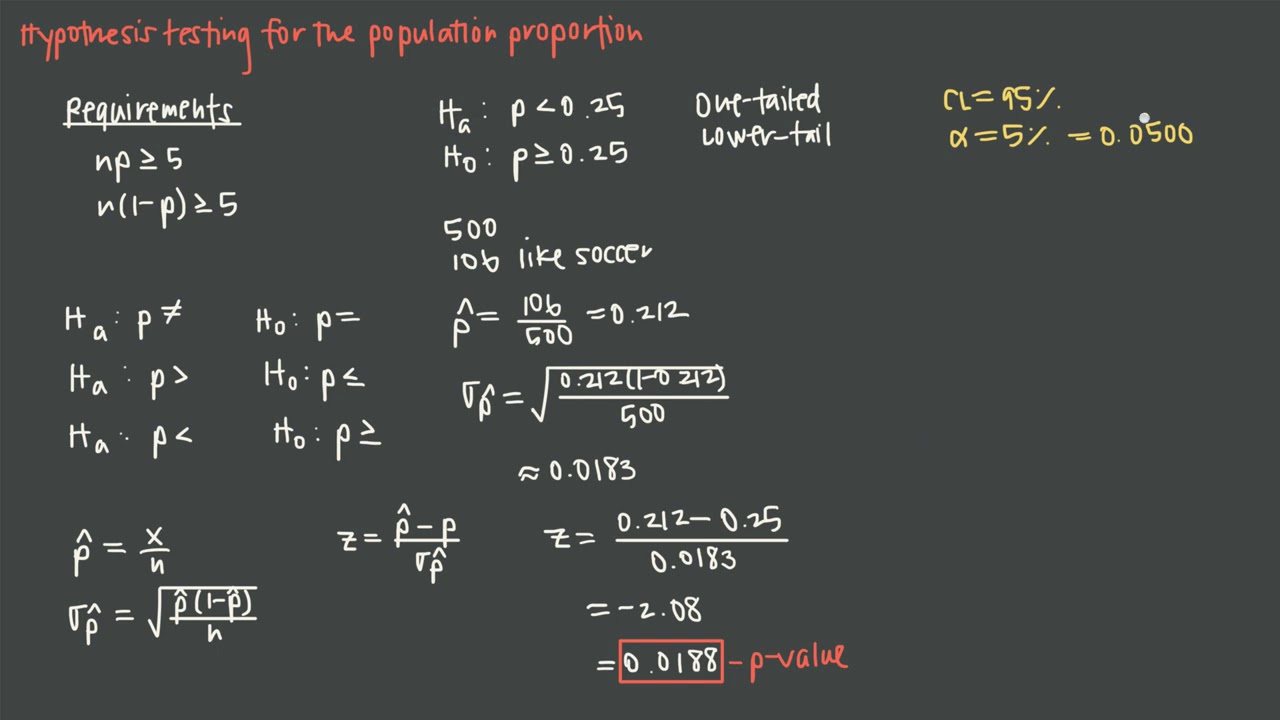 Hypothesis testing for the population proportion
Requirements
np ≥ 5
n(1-p) ≥ 5
Ha: p ≠ H0: p =
Ha: p > H0: p ≤
Ha: p < H0: p ≥
p̂ = x/n
σp̂ = √(p̂(1-p̂)/n)
z = (p̂ - p)/σp̂
Ha: p < 0.25
H0: p ≥ 0.25
One-tailed
Lower-tail
500
106 like soccer
p̂ = 106/500 = 0.212
σp̂ = √(0.212(1-0.212)/500)
≈ 0.0183
z = (0.212 - 0.25)/0.0183
= -2.08
= 0.0188 - p-value
CL = 95%
α = 5% = 0.0500